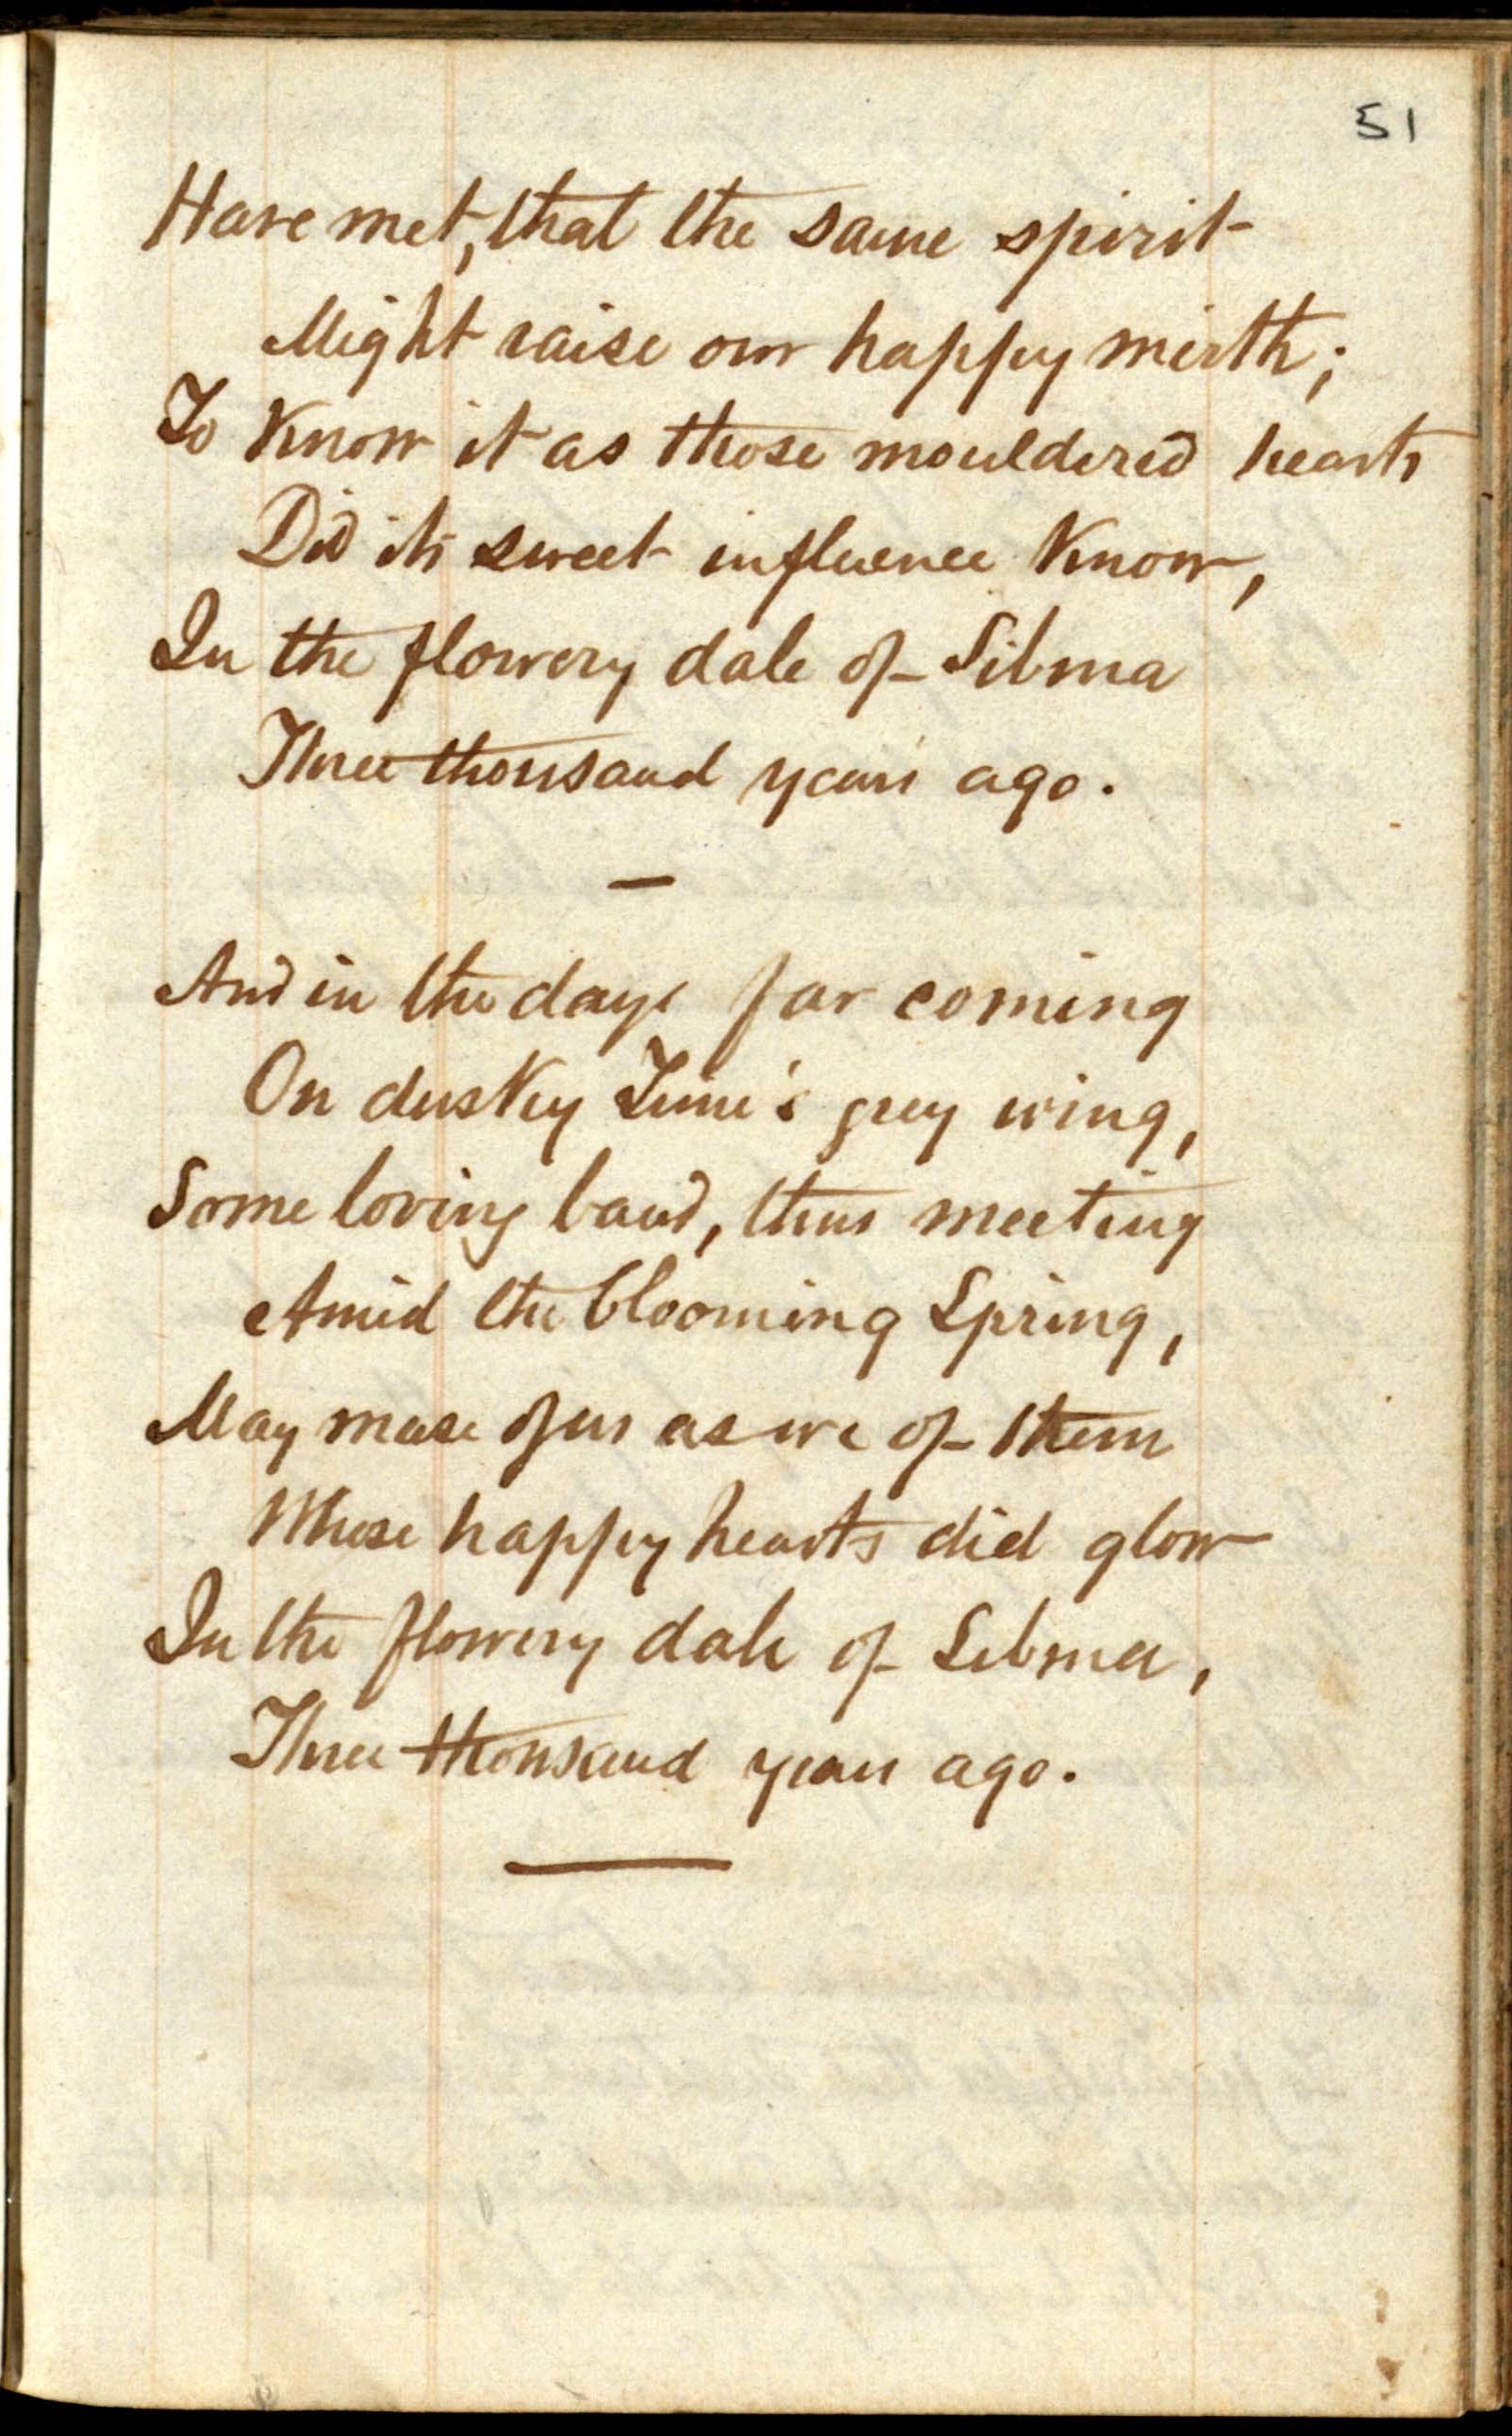 51
Have met, that the same spirit
Might raise our happy mirth;
To know it as those mouldered hearts
Did its sweet influence know,
In the flowery dale of Sibma
Three thousand years ago.
—
And in the days far coming
On dusky Time's grey wing,
Some loving band, thus meeting
Amid the blooming Spring,
May muse of us as we of them
Whose happy hearts did glow
In the flowery dale of Sibma,
Three thousand years ago.